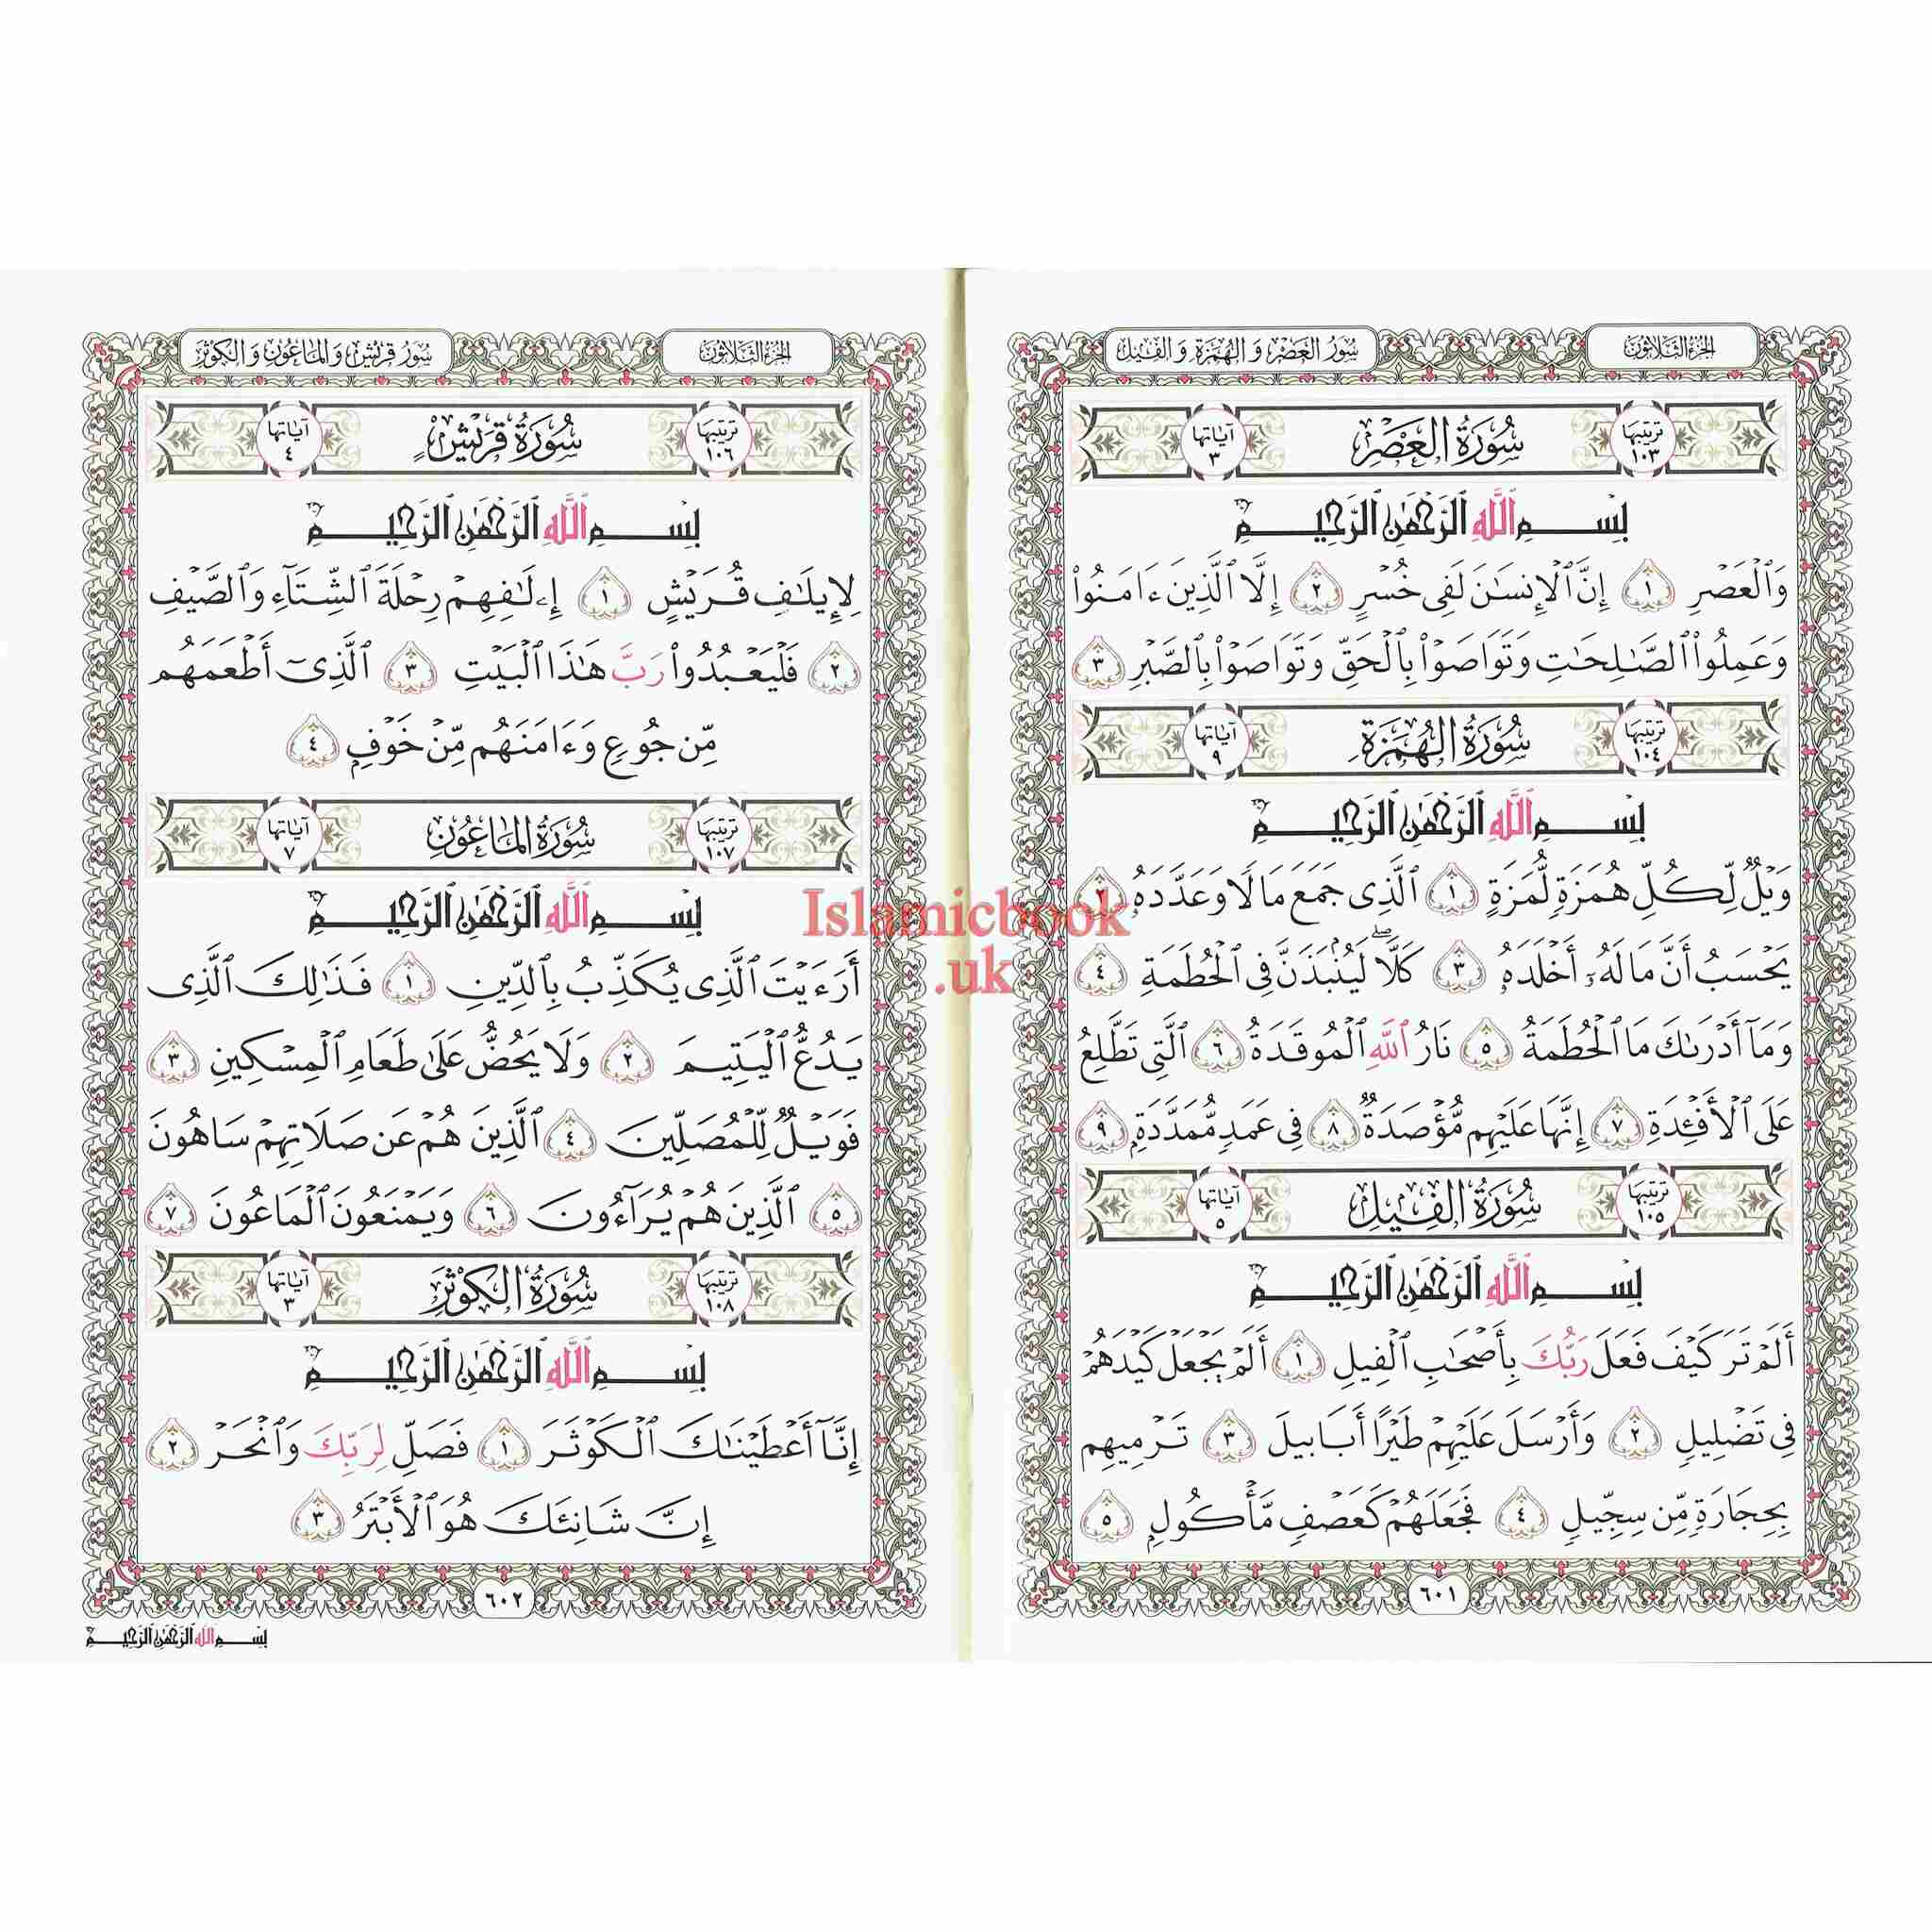 الجزء الثلاثون
سور العصر و الهمزة و الفيل
ترتيبها ١٠٣ سورة العصر آياتها ٣
بسم الله الرحمن الرحيم
وَٱلۡعَصۡرِ ١ إِنَّ ٱلۡإِنسَٰنَ لَفِى خُسۡرٍ ٢ إِلَّا ٱلَّذِينَ ءَامَنُوا۟
وَعَمِلُوا۟ ٱلصَّٰلِحَٰتِ وَتَوَاصَوۡا۟ بِٱلۡحَقِّ وَتَوَاصَوۡا۟ بِٱلصَّبۡرِ ٣
ترتيبها ١٠٤ سورة الهمزة آياتها ٩
بسم الله الرحمن الرحيم
وَيۡلٌ لِّكُلِّ هُمَزَةٍ لُّمَزَةٍ ١ ٱلَّذِى جَمَعَ مَالًا وَعَدَّدَهُۥ ٢
يَحۡسَبُ أَنَّ مَالَهُۥٓ أَخۡلَدَهُۥ ٣ كَلَّاۖ لَيُنۢبَذَنَّ فِى ٱلۡحُطَمَةِ ٤
وَمَآ أَدۡرَىٰكَ مَا ٱلۡحُطَمَةُ ٥ نَارُ ٱللَّهِ ٱلۡمُوقَدَةُ ٦ ٱلَّتِى تَطَّلِعُ
عَلَى ٱلۡأَفۡـِٔدَةِ ٧ إِنَّهَا عَلَيۡهِم مُّؤۡصَدَةٌ ٨ فِى عَمَدٍ مُّمَدَّدَةٍۭ ٩
ترتيبها ١٠٥ سورة الفيل آياتها ٥
بسم الله الرحمن الرحيم
أَلَمۡ تَرَ كَيۡفَ فَعَلَ رَبُّكَ بِأَصۡحَٰبِ ٱلۡفِيلِ ١ أَلَمۡ يَجۡعَلۡ كَيۡدَهُمۡ
فِى تَضۡلِيلٍ ٢ وَأَرۡسَلَ عَلَيۡهِمۡ طَيۡرًا أَبَابِيلَ ٣ تَرۡمِيهِم
بِحِجَارَةٍ مِّن سِجِّيلٍ ٤ فَجَعَلَهُمۡ كَعَصۡفٍ مَّأۡكُولٍۭ ٥
٦٠١
الجزء الثلاثون
سور قريش والماعون و الكوثر
ترتيبها ١٠٦ سورة قريش آياتها ٤
بسم الله الرحمن الرحيم
لِإِيلَٰفِ قُرَيۡشٍ ١ إِۦلَٰفِهِمۡ رِحۡلَةَ ٱلشِّتَآءِ وَٱلصَّيۡفِ
٢ فَلۡيَعۡبُدُوا۟ رَبَّ هَٰذَا ٱلۡبَيۡتِ ٣ ٱلَّذِىٓ أَطۡعَمَهُم
مِّن جُوعٍ وَءَامَنَهُم مِّنۡ خَوۡفٍۭ ٤
ترتيبها ١٠٧ سورة الماعون آياتها ٧
بسم الله الرحمن الرحيم
أَرَءَيۡتَ ٱلَّذِى يُكَذِّبُ بِٱلدِّينِ ١ فَذَٰلِكَ ٱلَّذِى
يَدُعُّ ٱلۡيَتِيمَ ٢ وَلَا يَحُضُّ عَلَىٰ طَعَامِ ٱلۡمِسۡكِينِ ٣
فَوَيۡلٌ لِّلۡمُصَلِّينَ ٤ ٱلَّذِينَ هُمۡ عَن صَلَاتِهِمۡ سَاهُونَ
٥ ٱلَّذِينَ هُمۡ يُرَآءُونَ ٦ وَيَمۡنَعُونَ ٱلۡمَاعُونَ ٧
ترتيبها ١٠٨ سورة الكوثر آياتها ٣
بسم الله الرحمن الرحيم
إِنَّآ أَعۡطَيۡنَٰكَ ٱلۡكَوۡثَرَ ١ فَصَلِّ لِرَبِّكَ وَٱنۡحَرۡ ٢
إِنَّ شَانِئَكَ هُوَ ٱلۡأَبۡتَرُ ٣
٦٠٢
بسم الله الرحمن الرحيم
Islamicbook
.uk